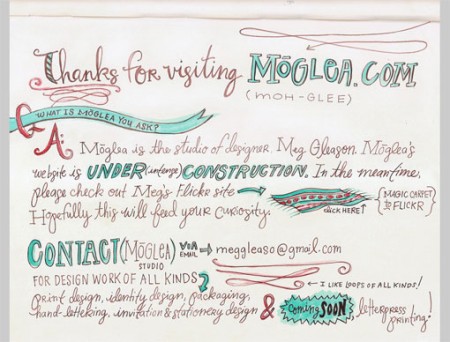 Thanks for visiting MŌGLEA.COM
(MOH-GLEE)
Q
WHAT IS MŌGLEA YOU ASK?
A: Mōglea is the studio of designer Meg Gleason. Mōglea's
website is UNDER (intense) CONSTRUCTION. In the meantime,
please check out Meg's Flickr site
CLICK HERE!
MAGIC CARPET TO FLICKR
Hopefully this will feed your curiosity.
CONTACT (MŌGLEA) VIA EMAIL meggleaso@gmail.com
STUDIO
FOR DESIGN WORK OF ALL KINDS
I LIKE LOOPS OF ALL KINDS!
print design, identity design, packaging,
hand-lettering, invitation & stationery design & Coming SOON letterpress printing!